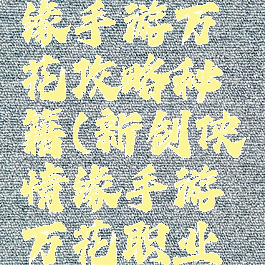 缘手游万
花攻略秘
籍(新剑侠
情缘手游
万花职业